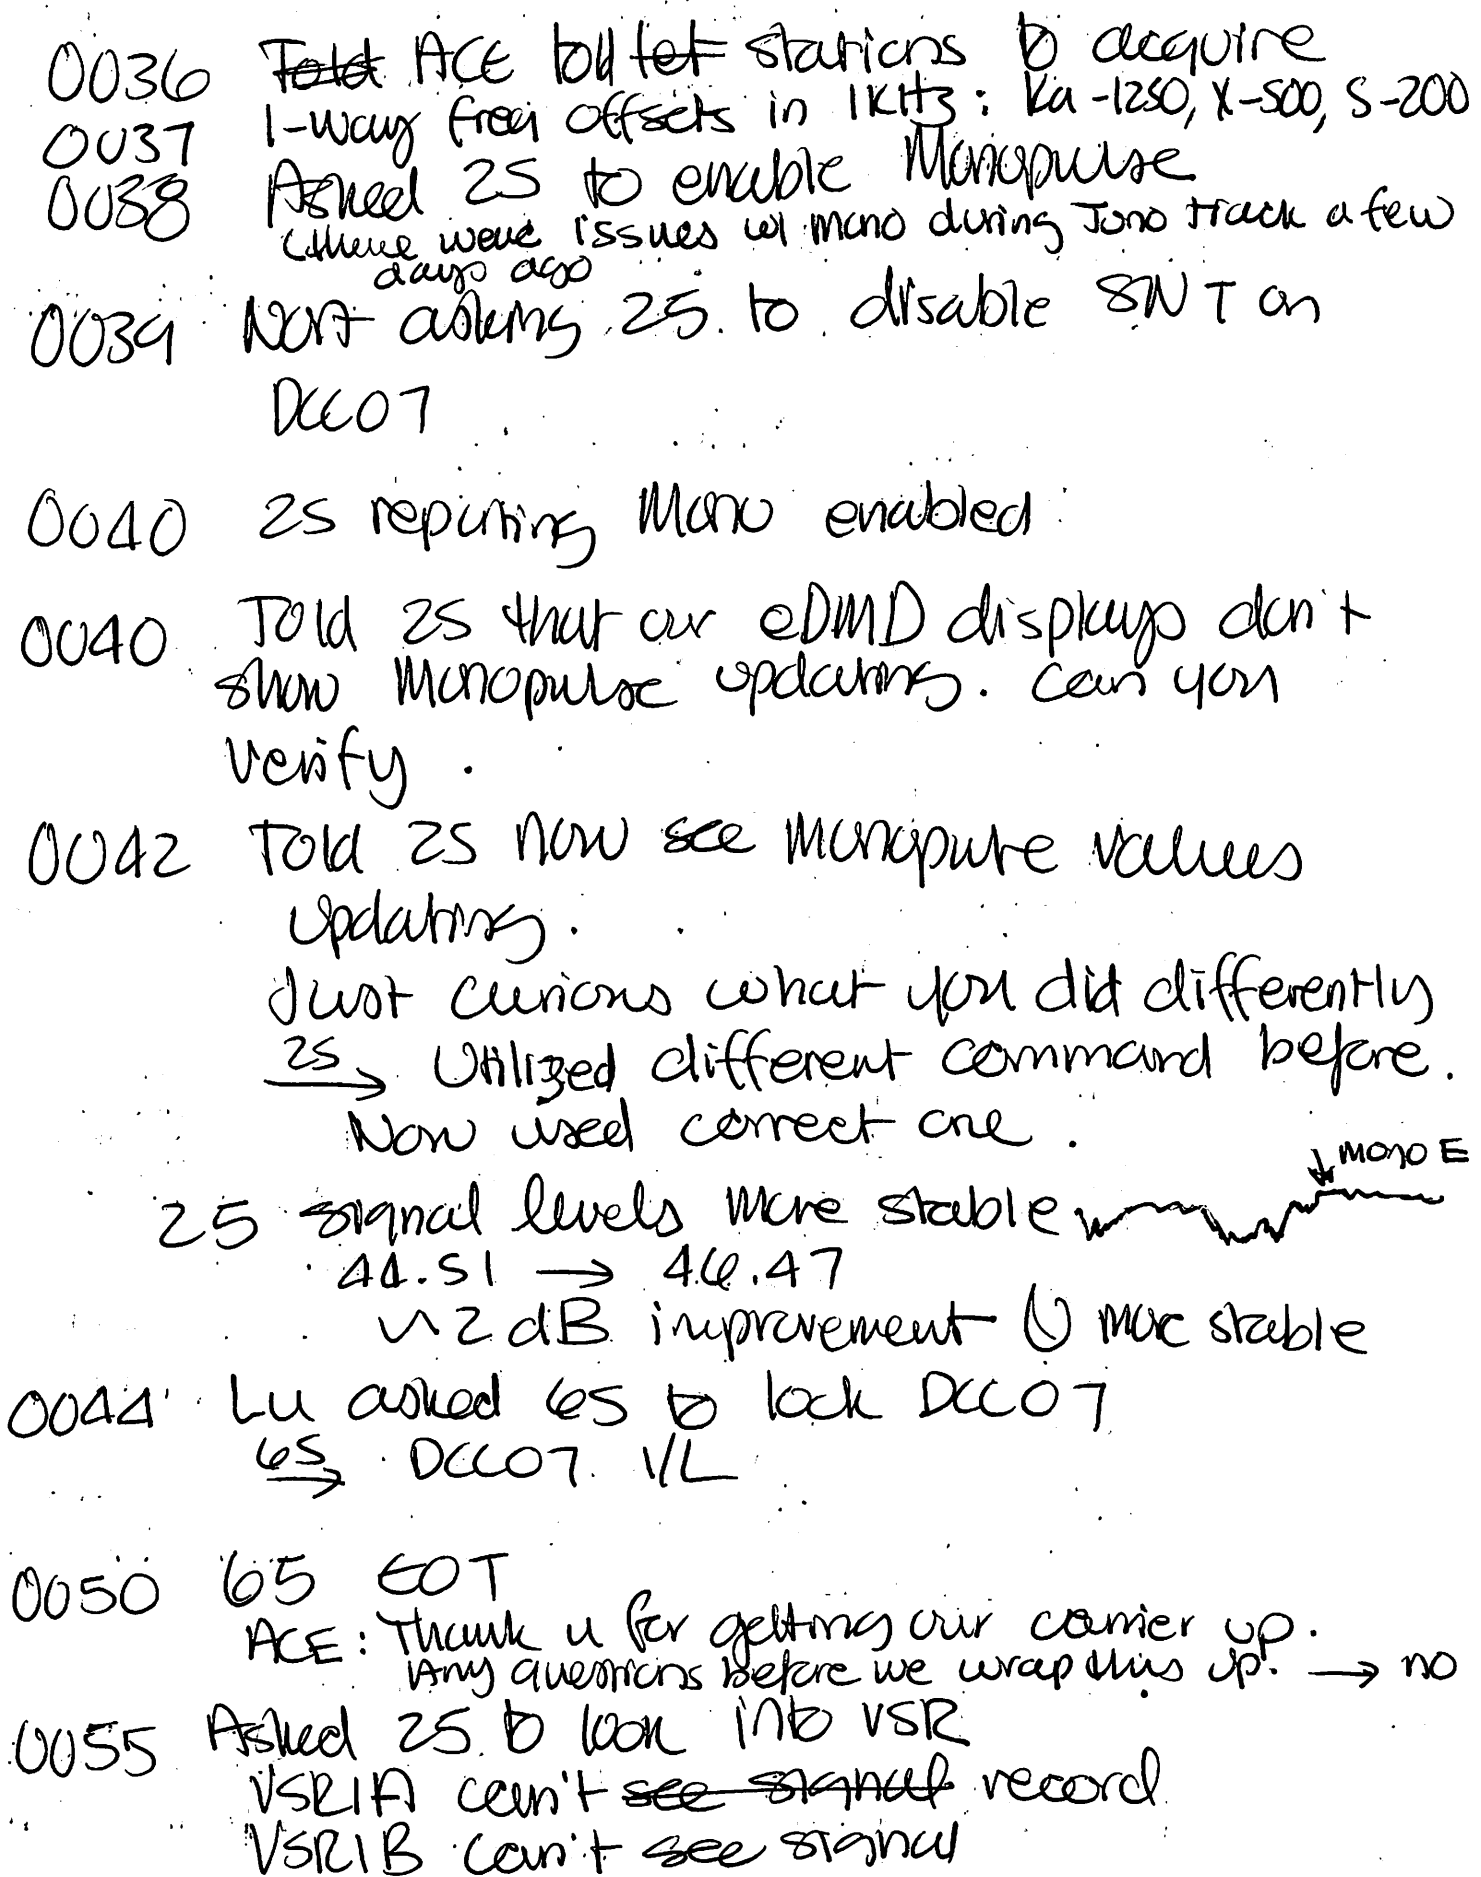 0036 ~~Told~~ ACE told ~~let~~ stations to acquire
0037 1-way freq offsets in 1KHz: Ka-1250, X-500, S-200
0038 Asked 25 to enable Monopulse
(there were issues w/ mono during Juno track a few
days ago
0039 Not asking 25 to disable SNT on
DCC07
0040 25 reporting Mono enabled
0040 Told 25 that our eDMD displays don't
show Monopulse updating. Can you
verify.
0042 Told 25 now see Monopulse values
updating.
Just curious what you did differently
25 → Utilized different command before.
Now used correct one.
↓ mono E
25 signal levels more stable
44.51 → 46.47
~2 dB improvement more stable
0044 Lu asked 65 to lock DCC07
65 → DCC07 I/L
0050 65 EOT
ACE: Thank u for getting our carrier up.
Any questions before we wrap this up? → no
0055 Asked 25 to look into VSR
VSR1A can't ~~see signal~~ record
VSR1B can't see signal